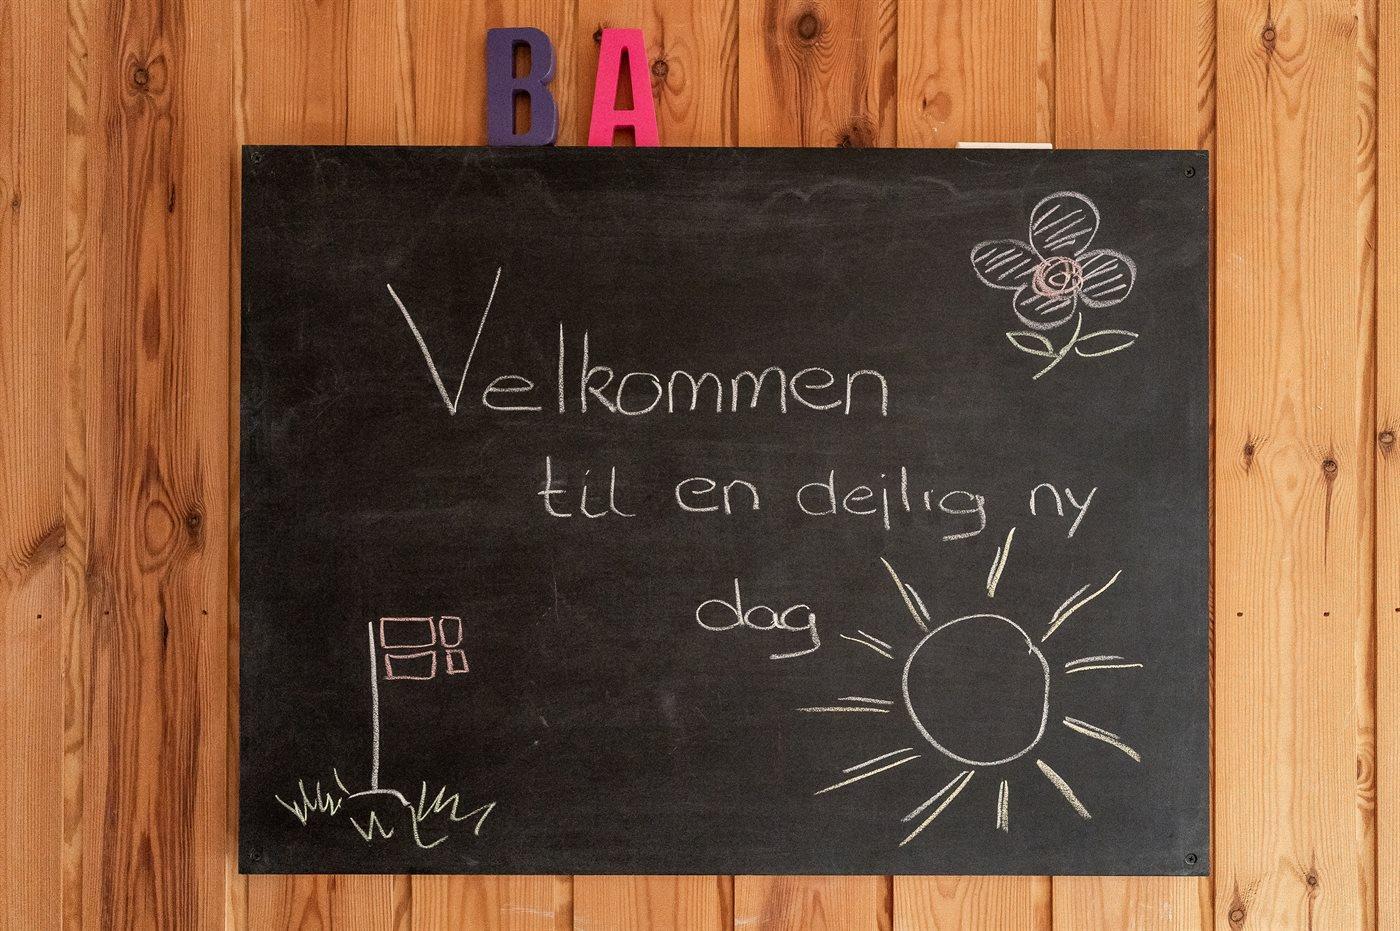 BA
Velkommen
til en dejlig ny
dag